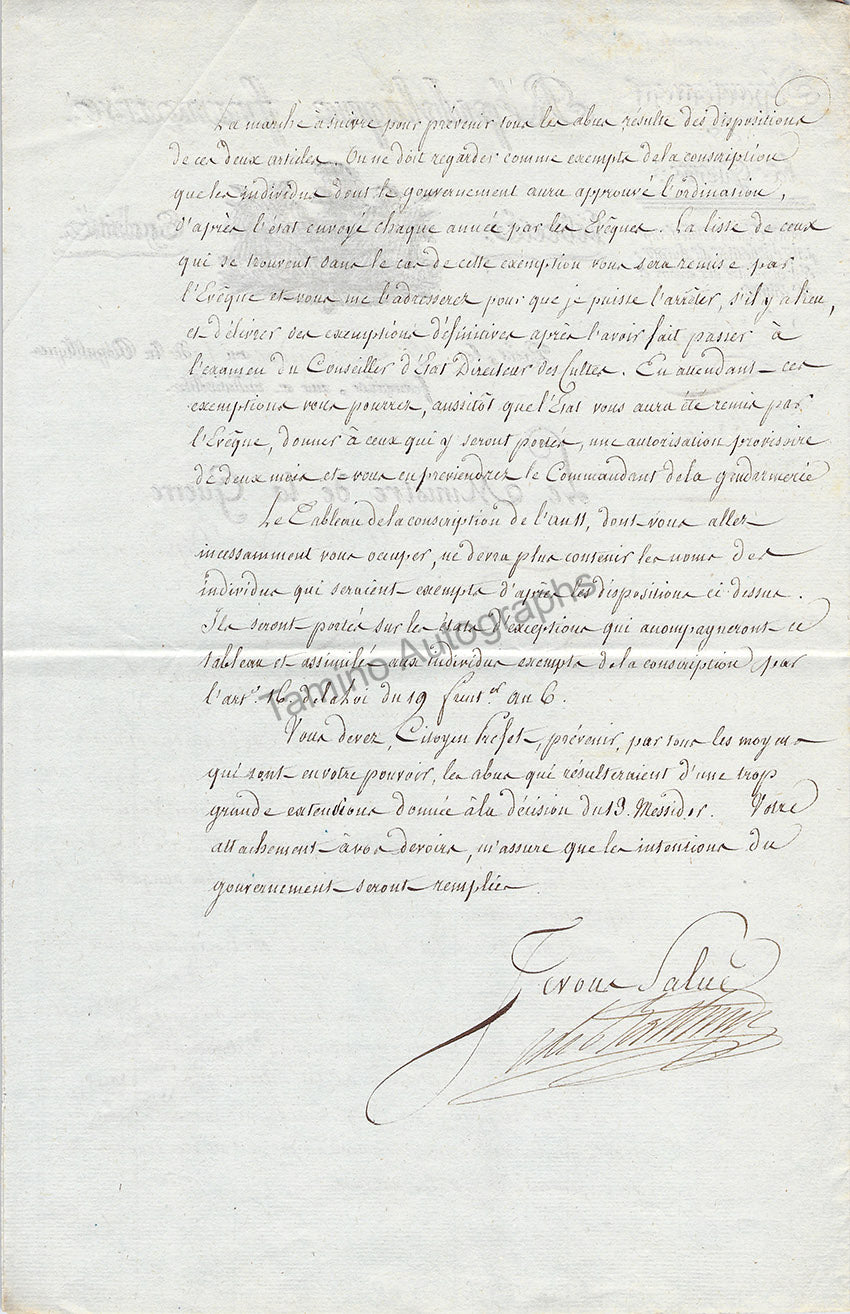 La marche à suivre pour prévenir tous les abus résulte des dispositions
de ces deux articles. On ne doit regarder comme exempts de la conscription
que les individus dont le gouvernement aura approuvé l'ordination,
d'après l'état envoyé chaque année par les Evêques. La liste de ceux
qui se trouvent dans le cas de cette exemption vous sera remise par
l'Evêque et vous me l'adresserez pour que je puisse l'arrêter, s'il y a lieu,
et délivrer des exemptions définitives après l'avoir fait passer à
l'examen du Conseiller d'Etat Directeur des Cultes. En attendant ces
exemptions vous pourrez, aussitôt que l'Etat vous aura été remis par
l'Evêque, donner à ceux qui y seront portés, une autorisation provisoire
de deux mois et vous en préviendrez le Commandant de la gendarmerie
Le Tableau de la conscription de l'an 11, dont vous allez
incessamment vous occuper, ne devra plus contenir les noms des
individus qui seraient exempts d'après les dispositions ci dessus.
Ils seront portés sur les états d'exceptions qui acompagneront ce
tableau et assimilés aux individus exempts de la conscription par
l'art. 16. de la Loi du 19 fruct.or an 6.
Vous devez, Citoyen Préfet, prévenir, par tous les moyens
qui sont en votre pouvoir, les abus qui résulteraient d'une trop
grande extension donnée à la décision du 19. Messidor. Votre
attachement à vos devoirs, m'assure que les intentions du
gouvernement seront remplies.
Je vous Salue
Tamino Autographs